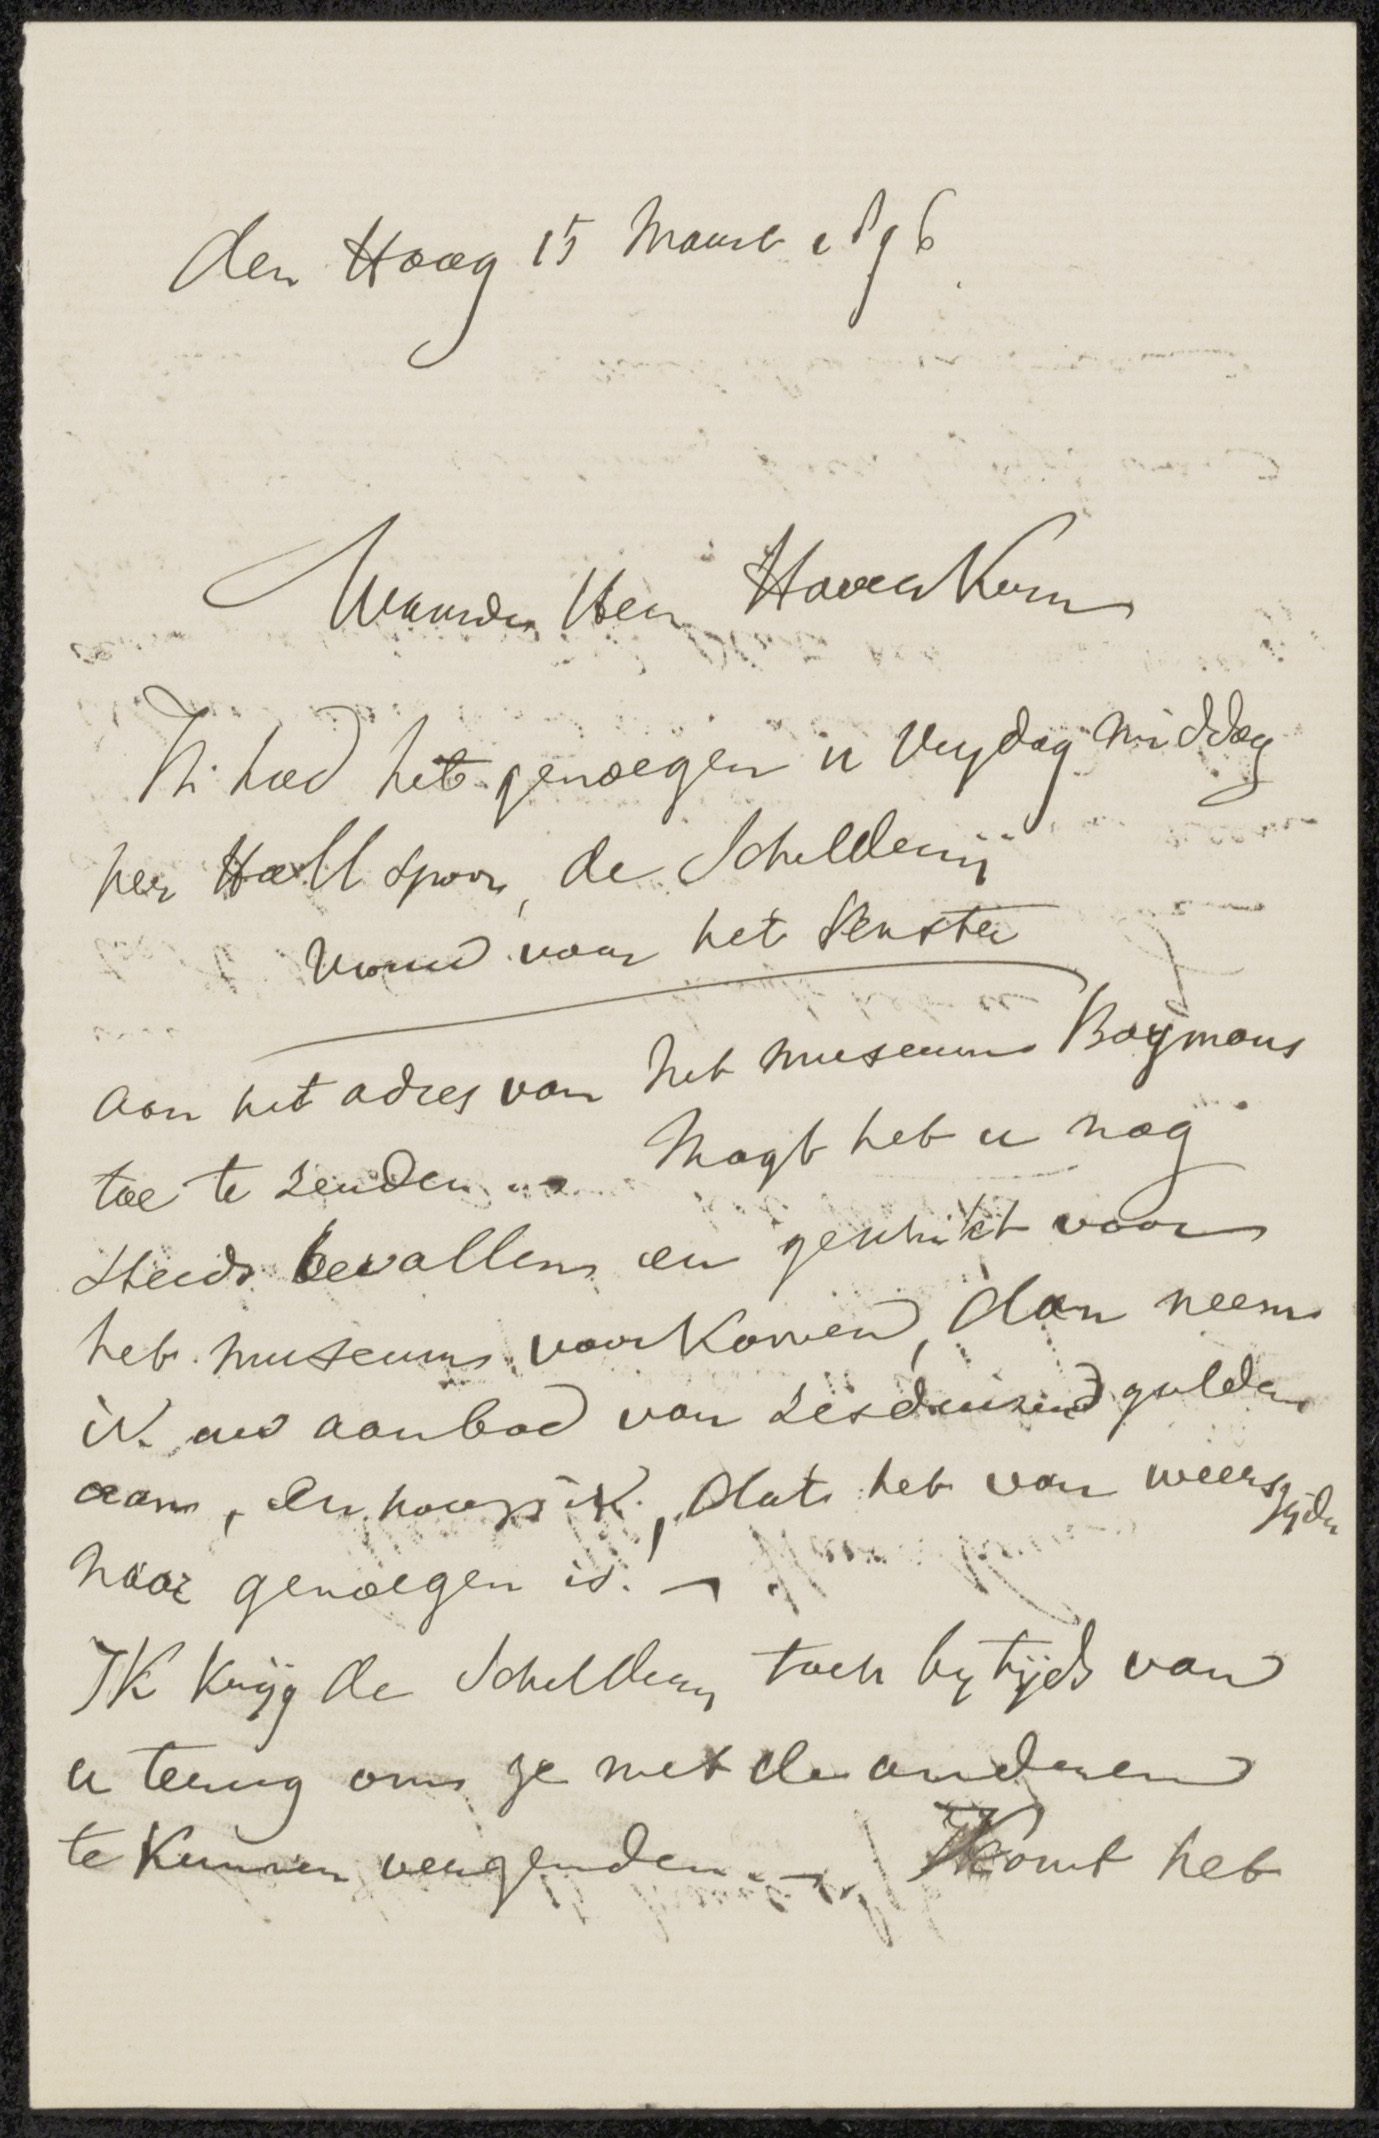 den Haag 15 Maart 1896.
Waarde Heer Haverkorn
Ik had het genoegen u Vrydag middag
per Holl spoor, de Schilderij
Vrouw voor het Venster
aan het adres van het museum Boymans
toe te zenden. — Mogt het u nog
steeds bevallen en geschikt voor
het museum voorkomen, dan neem
ik uw aanbod van zesduizend gulden
aan, en hoop ik, dat het van weerszijden
naar genoegen is. —
Ik krijg de Schildery toch bytijds van
u terug om ze met de anderen
te kunnen verzenden. — Komt het